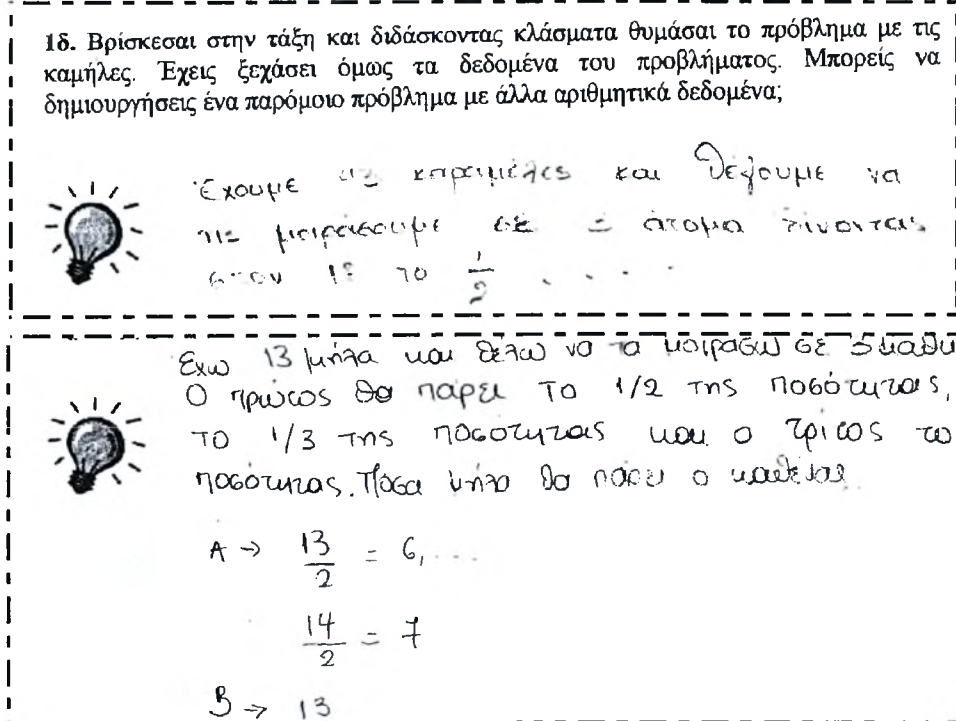 1δ. Βρίσκεσαι στην τάξη και διδάσκοντας κλάσματα θυμάσαι το πρόβλημα με τις
καμήλες. Έχεις ξεχάσει όμως τα δεδομένα του προβλήματος. Μπορείς να
δημιουργήσεις ένα παρόμοιο πρόβλημα με άλλα αριθμητικά δεδομένα;
Έχουμε καραμέλες και θέλουμε να
τις μοιράσουμε σε άτομα δίνοντας
στον 1ο το 1/2 ....
Εχω 13 μήλα και θέλω να τα μοιράσω σε 3
Ο πρώτος θα παρει το 1/2 της ποσότητας,
το 1/3 της ποσότητας και ο τρίτος το
ποσότητας. Πόσα μήλα θα πάρει ο καθένας
A → 13/2 = 6,...
14/2 = 7
B → 13